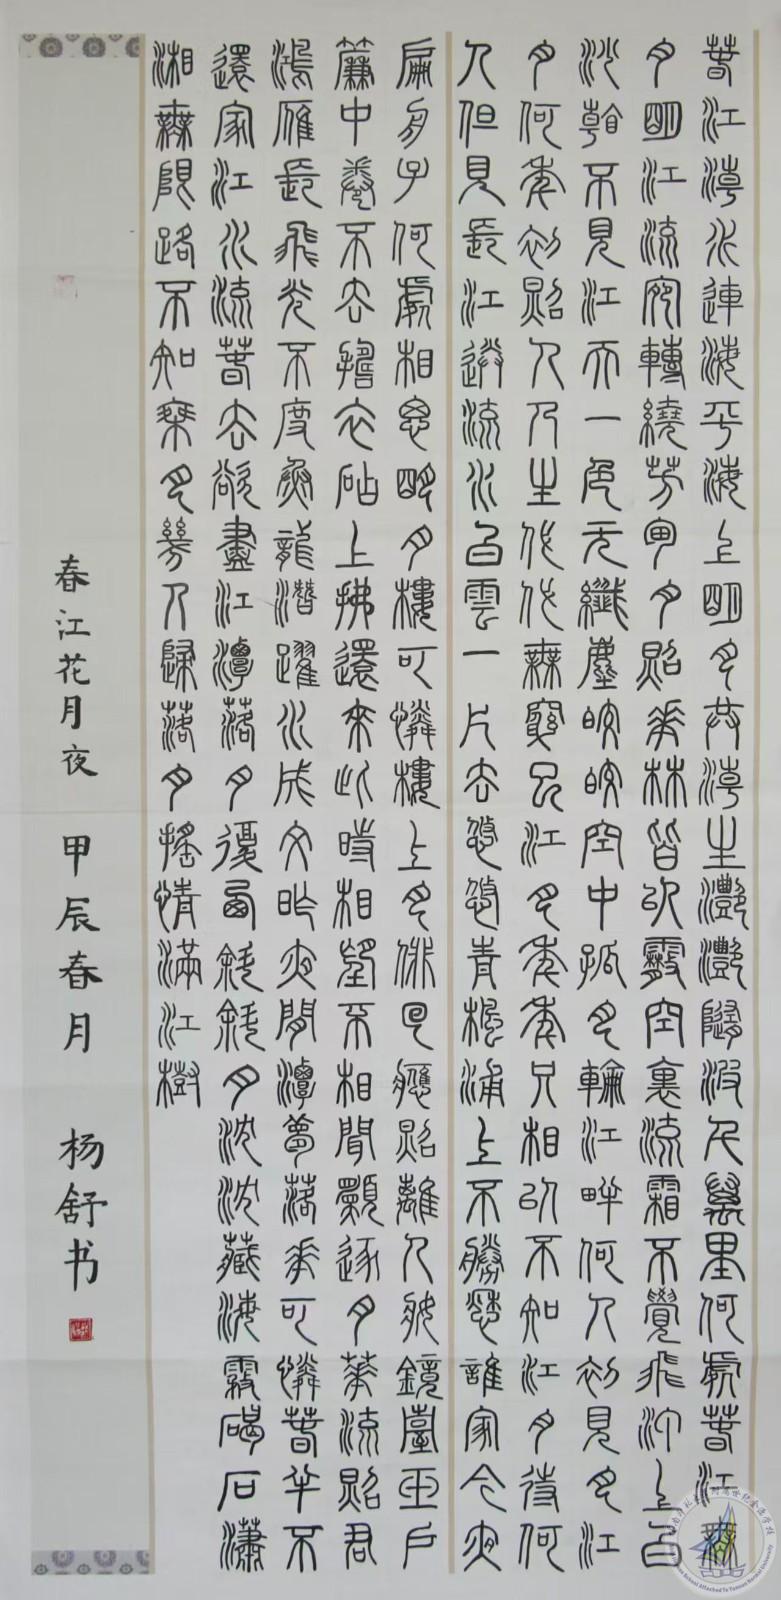 春江潮水連海平海上明月共潮生灩灩隨波千萬里何處春江無
月明江流宛轉繞芳甸月照花林皆似霰空裏流霜不覺飛汀上白
沙看不見江天一色无纖塵皎皎空中孤月輪江畔何人初見月江
月何年初照人人生代代無窮已江月年年只相似不知江月待何
人但見長江送流水白雲一片去悠悠青楓浦上不勝愁誰家今夜
扁舟子何處相思明月樓可憐樓上月徘回應照離人妝鏡臺玉戶
簾中卷不去擣衣砧上拂還來此時相望不相聞願逐月華流照君
鴻雁長飛光不度魚龍潛躍水成文昨夜閒潭夢落花可憐春半不
還家江水流春去欲盡江潭落月復西斜斜月沈沈藏海霧碣石瀟
湘無限路不知乘月幾人歸落月搖情滿江樹
春江花月夜 甲辰春月 杨舒书